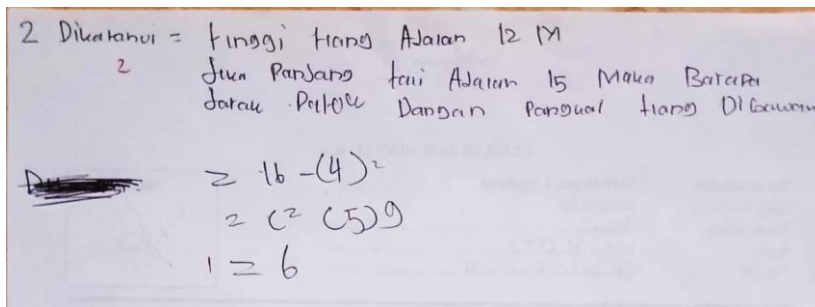 2 Dikatahui = tinggi tiang Adalan 12 M
2
Jika Panjang tali Adalan 15 Maka Barapa
Jarak Patok Dangan Pangual tiang Di bawah
= 16 - (4)²
= c² (5) 9
1 = 6